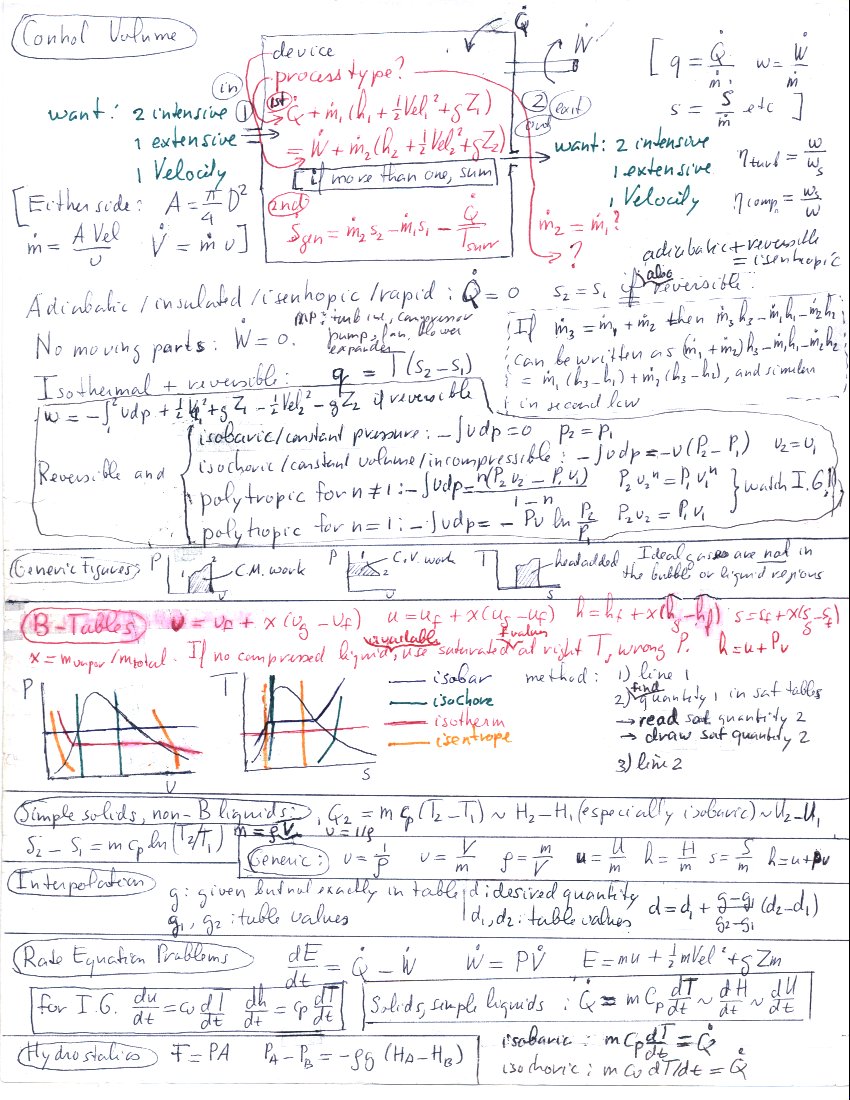 Control Volume
Q̇
Ẇ
device
process type?
[ q = Q̇/ṁ w = Ẇ/ṁ
s = Ṡ/ṁ etc ]
in
want: 2 intensive ①
1 extensive
1 Velocity
1st
Q̇ + ṁ₁(h₁ + ½Vel₁² + gZ₁)
= Ẇ + ṁ₂(h₂ + ½Vel₂² + gZ₂)
[if more than one, sum
2nd
Ṡgen = ṁ₂s₂ - ṁ₁s₁ - Q̇/Tsurr
② exit
out
want: 2 intensive
1 extensive
1 Velocity
ηturb = w/ws
ηcomp = ws/w
ṁ₂ = ṁ₁?
?
[Either side: A = π/4 D²
ṁ = A Vel/υ V̇ = ṁ υ]
adiabatic + reversible
= isentropic
Adiabatic / insulated / isentropic / rapid: Q̇ = 0 s₂ = s₁ if also reversible
No moving parts: Ẇ = 0.
MP: turbine, compressor
pump, fan, blower
expander
Isothermal + reversible: q = T(s₂ - s₁)
If ṁ₃ = ṁ₁ + ṁ₂ then ṁ₃h₃ - ṁ₁h₁ - ṁ₂h₂
can be written as (ṁ₁ + ṁ₂)h₃ - ṁ₁h₁ - ṁ₂h₂
= ṁ₁(h₃ - h₁) + ṁ₂(h₃ - h₂), and similar
in second law
w = -∫₁² υdp + ½Vel₁² + gZ₁ - ½Vel₂² - gZ₂ if reversible
Reversible and
isobaric/constant pressure: -∫υdp = 0 P₂ = P₁
isochoric/constant volume/incompressible: -∫υdp = -υ(P₂ - P₁) υ₂ = υ₁
polytropic for n ≠ 1: -∫υdp = n(P₂υ₂ - P₁υ₁)/1-n P₂υ₂ⁿ = P₁υ₁ⁿ
polytropic for n = 1: -∫υdp = -Pυ ln P₂/P₁ P₂υ₂ = P₁υ₁
} watch I.G.!!
Generic Figures
P 1 2 C.M. work υ
P 1 2 C.V. work υ
T heat added s
Ideal gases are not in
the bubble or liquid regions
B-Tables υ = υf + x(υg - υf) u = uf + x(ug - uf) h = hf + x(hg - hf) s = sf + x(sg - sf)
x = mvapor/mtotal. If no compressed liquid available, use saturated values at right T, wrong P. h = u + Pυ
P
υ
T
s
isobar
isochore
isotherm
isentrope
method: 1) line 1
2) find quantity 1 in sat tables
→ read sat quantity 2
→ draw sat quantity 2
3) line 2
Simple solids, non-B liquids: ₁Q₂ = m cp(T₂ - T₁) ~ H₂ - H₁ (especially isobaric) ~ U₂ - U₁
S₂ - S₁ = m cp ln(T₂/T₁) m = ρV υ = 1/ρ
Generic: υ = 1/ρ υ = V/m ρ = m/V u = U/m h = H/m s = S/m h = u + pυ
Interpolation
g: given but not exactly in table
g₁, g₂: table values
d: desired quantity
d₁, d₂: table values
d = d₁ + g-g₁/g₂-g₁ (d₂ - d₁)
Rate Equation Problems dE/dt = Q̇ - Ẇ Ẇ = PV̇ E = mu + ½mVel² + gZm
for I.G. du/dt = cυ dT/dt dh/dt = cp dT/dt
Solids, simple liquids: Q̇ = m Cp dT/dt ~ dH/dt ~ dU/dt
Hydrostatics F = PA PA - PB = -ρg(HA - HB)
isobaric: m Cp dT/dt = Q̇
isochoric: m cυ dT/dt = Q̇